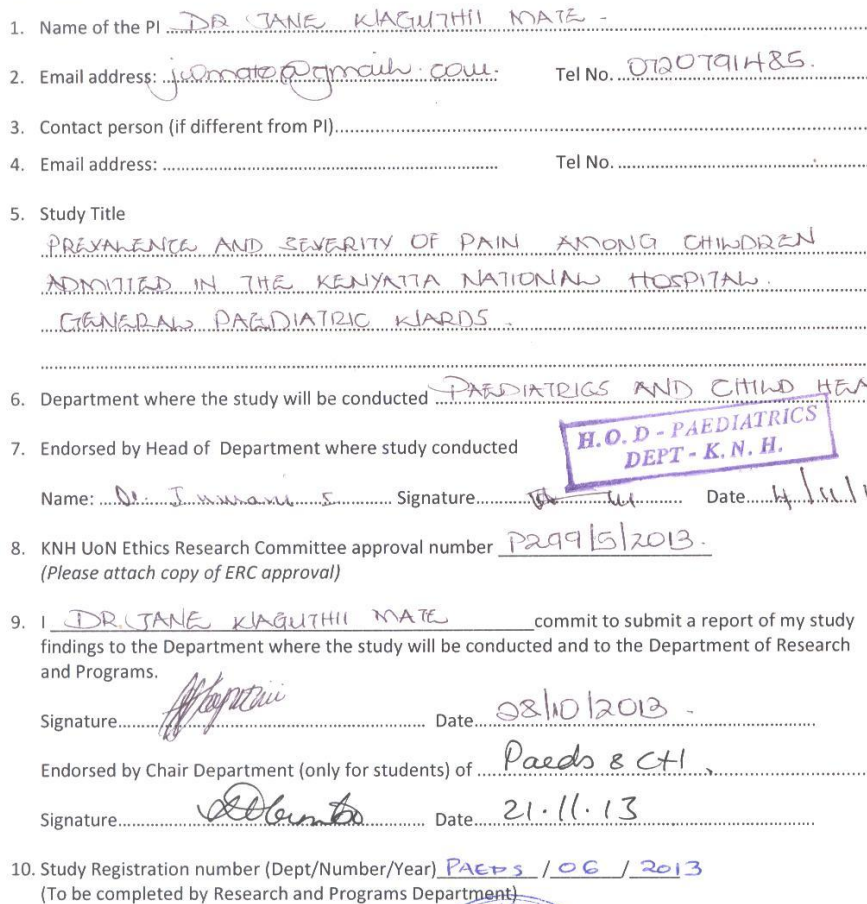 1. Name of the PI DR JANE WAGUTHII MATE -
2. Email address: jwmate@gmail.com. Tel No. 0720791485.
3. Contact person (if different from PI)
4. Email address: Tel No.
5. Study Title
PREVALENCE AND SEVERITY OF PAIN AMONG CHILDREN
ADMITTED IN THE KENYATTA NATIONAL HOSPITAL.
GENERAL PAEDIATRIC WARDS.
6. Department where the study will be conducted PAEDIATRICS AND CHILD HEA
H.O.D - PAEDIATRICS
DEPT - K. N. H.
7. Endorsed by Head of Department where study conducted
Name: Dr. Signature Date 4/11/1
8. KNH UoN Ethics Research Committee approval number P299/5/2013.
(Please attach copy of ERC approval)
9. I DR. JANE WAGUTHII MATE commit to submit a report of my study
findings to the Department where the study will be conducted and to the Department of Research
and Programs.
Signature Date 28/10/2013 -
Endorsed by Chair Department (only for students) of Paeds & CH
Signature Date 21.11.13
10. Study Registration number (Dept/Number/Year) PAEDS / 06 / 2013
(To be completed by Research and Programs Department)